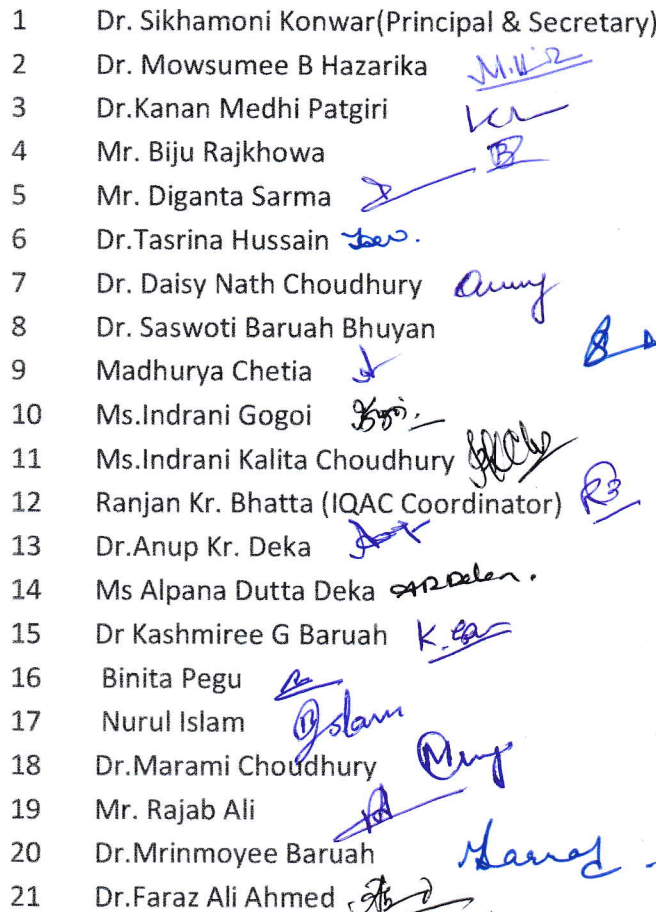 1 Dr. Sikhamoni Konwar(Principal & Secretary)
2 Dr. Mowsumee B Hazarika
3 Dr.Kanan Medhi Patgiri
4 Mr. Biju Rajkhowa
5 Mr. Diganta Sarma
6 Dr.Tasrina Hussain
7 Dr. Daisy Nath Choudhury
8 Dr. Saswoti Baruah Bhuyan
9 Madhurya Chetia
10 Ms.Indrani Gogoi
11 Ms.Indrani Kalita Choudhury
12 Ranjan Kr. Bhatta (IQAC Coordinator)
13 Dr.Anup Kr. Deka
14 Ms Alpana Dutta Deka
15 Dr Kashmiree G Baruah
16 Binita Pegu
17 Nurul Islam
18 Dr.Marami Choudhury
19 Mr. Rajab Ali
20 Dr.Mrinmoyee Baruah
21 Dr.Faraz Ali Ahmed